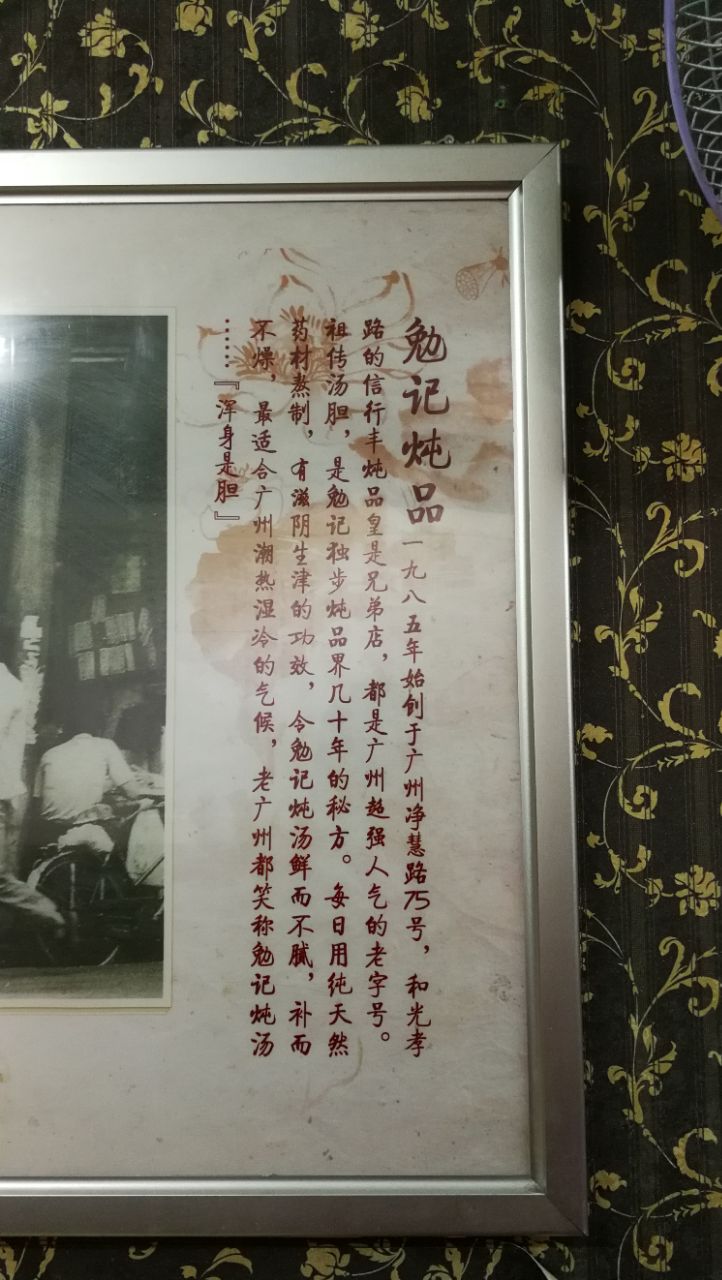 勉记炖品一九八五年始创于广州净慧路75号，和光孝
路的信行丰炖品皇是兄弟店，都是广州超强人气的老字号。
祖传汤胆，是勉记独步炖品界几十年的秘方。每日用纯天然
药材熬制，有滋阴生津的功效，令勉记炖汤鲜而不腻，补而
不燥，最适合广州潮热湿冷的气候，老广州都笑称勉记炖汤
……『浑身是胆』